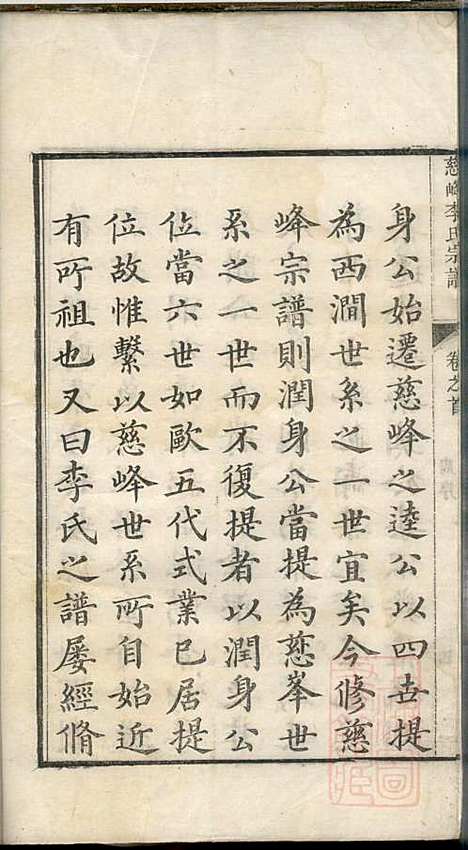 慈峰李氏宗譜
卷之首
身公始遷慈峰之達公以四世提
為西澗世系之一世宜矣今修慈
峰宗譜則潤身公當提為慈峯世
系之一世而不復提者以潤身公
位當六世如歐五代式業已居提
位故惟繫以慈峰世系所自始近
有所祖也又曰李氏之譜屡經脩